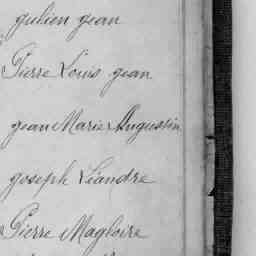 julien jean
Pierre Louis jean
jean Marie Augustin
joseph Léandre
Pierre Magloire